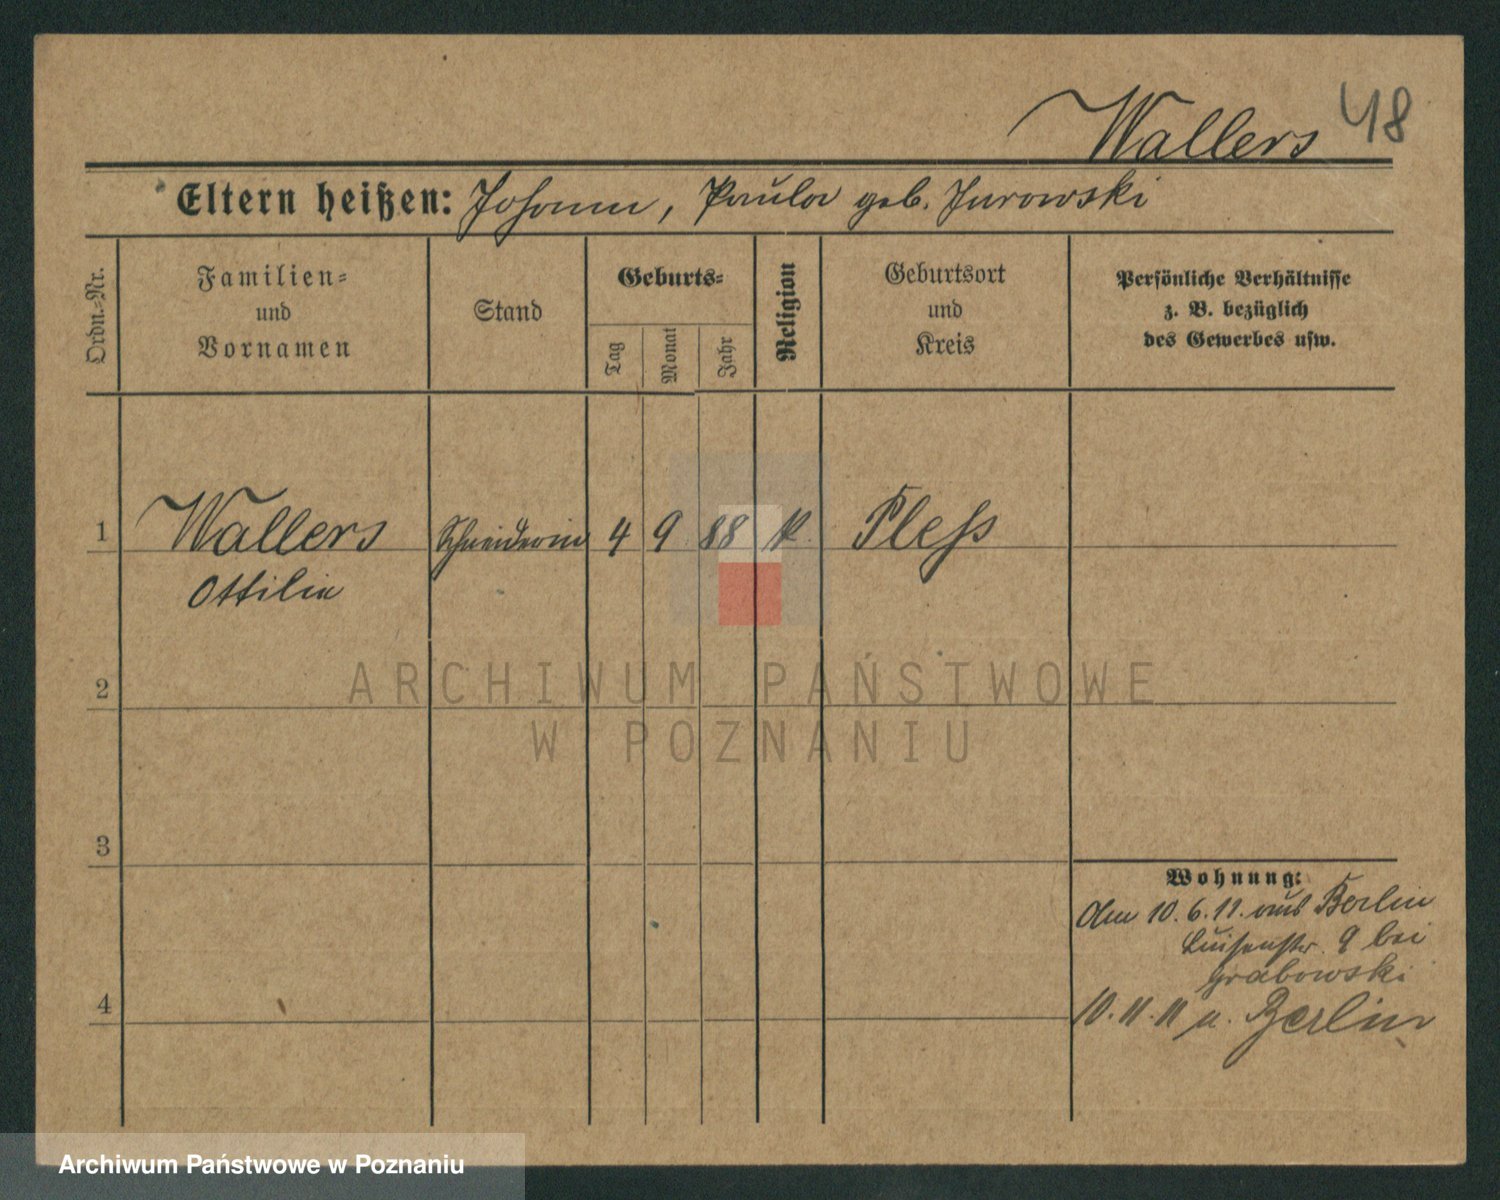 Wallers 48
Eltern heißen: Johann, Paula geb. Jurowski
Ordn.-Nr.
Familien-
und
Vornamen
Stand
Geburts-
Tag
Monat
Jahr
Religion
Geburtsort
und
Kreis
Persönliche Verhältnisse
z. B. bezüglich
des Gewerbes usw.
1 Wallers Schneiderin 4 9 88 k. Pleß
Ottilie
ARCHIWUM PAŃSTWOWE
W POZNANIU
2
3
Wohnung:
Am 10.6.11. aus Berlin
Luisenstr. 9 bei
Grabowski.
4
10.11.11 n. Berlin
Archiwum Państwowe w Poznaniu